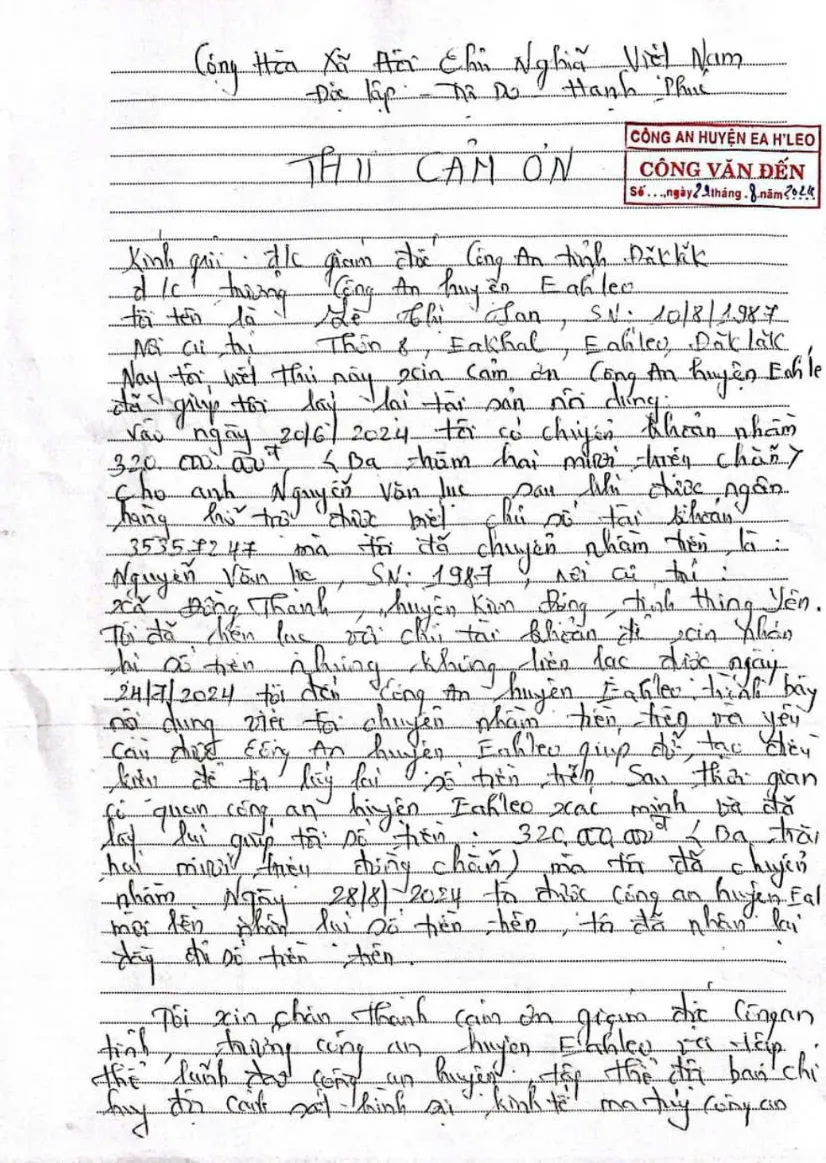 Cộng Hòa Xã Hội Chủ Nghĩa Việt Nam
Độc lập - Tự Do - Hạnh Phúc
CÔNG AN HUYỆN EA H'LEO
CÔNG VĂN ĐẾN
Số....,ngày 29 tháng.8.năm 2024
THƯ CẢM ƠN
Kính gửi: đ/c giám đốc Công An tỉnh Đăk lăk
đ/c trưởng Công An huyện Eahleo
tôi tên là Thị San, SN: 10/8/1987
Nơi cư trú Thôn 8, Eakhal, Eahleo, Đăk lăk
Nay tôi viết thư này xin cảm ơn Công An huyện Eahle
đã giúp tôi lấy lại tài sản nội dung:
vào ngày 20/6/2024 tôi có chuyển khoản nhầm
320.000.000đ, (Ba trăm hai mươi triệu chẵn)
cho anh Nguyễn Văn sau khi được ngân
hàng hỗ trợ được biết chủ số tài khoản
35357247 mà tôi đã chuyển nhầm tiền, là:
Nguyễn Văn, SN: 1987, nơi cư trú:
xã Đồng Thanh, huyện Kim Động, tỉnh Hưng Yên.
Tôi đã liên lạc với chủ tài khoản để xin nhận
lại số tiền nhưng không liên lạc được ngày
24/7/2024 tôi đến Công An huyện Eahleo trình bày
nội dung việc tôi chuyển nhầm tiền trên và yêu
cầu được Công An huyện Eahleo giúp đỡ, tạo điều
kiện để tôi lấy lại số tiền trên. Sau thời gian
cơ quan công an huyện Eahleo xác minh và đã
lấy lại giúp tôi số tiền: 320.000.000đ (Ba trăm
hai mươi triệu đồng chẵn) mà tôi đã chuyển
nhầm. Ngày 28/8/2024 tôi được Công an huyện Eal
mời lên nhận lại số tiền trên, tôi đã nhận lại
đầy đủ số tiền trên.
Tôi xin chân thành cảm ơn giám đốc Công an
tỉnh, trưởng công an huyện Eahleo và tập
thể lãnh đạo công an huyện, tập thể đội ban chỉ
huy đội cảnh sát hình sự, kinh tế ma túy Công an